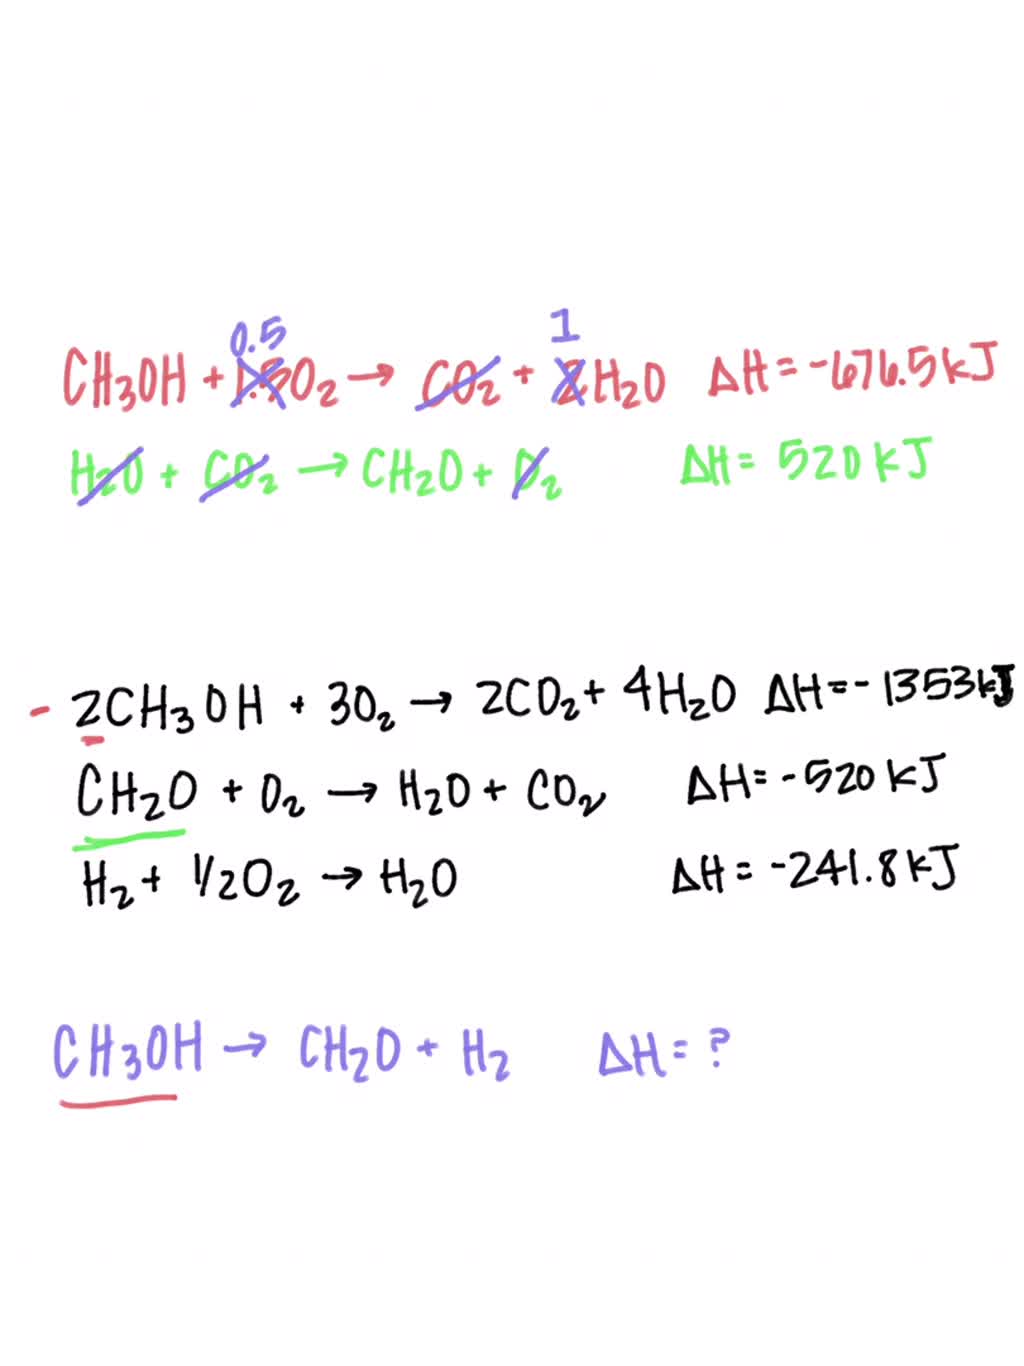 0.5 1
CH₃OH + 1.5O₂ → CO₂ + 2H₂O ΔH = -676.5 kJ
H₂O + CO₂ → CH₂O + O₂ ΔH = 520 kJ
- 2CH₃OH + 3O₂ → 2CO₂ + 4H₂O ΔH = - 1353 kJ
CH₂O + O₂ → H₂O + CO₂ ΔH = -520 kJ
H₂ + 1/2O₂ → H₂O ΔH = -241.8 kJ
CH₃OH → CH₂O + H₂ ΔH = ?